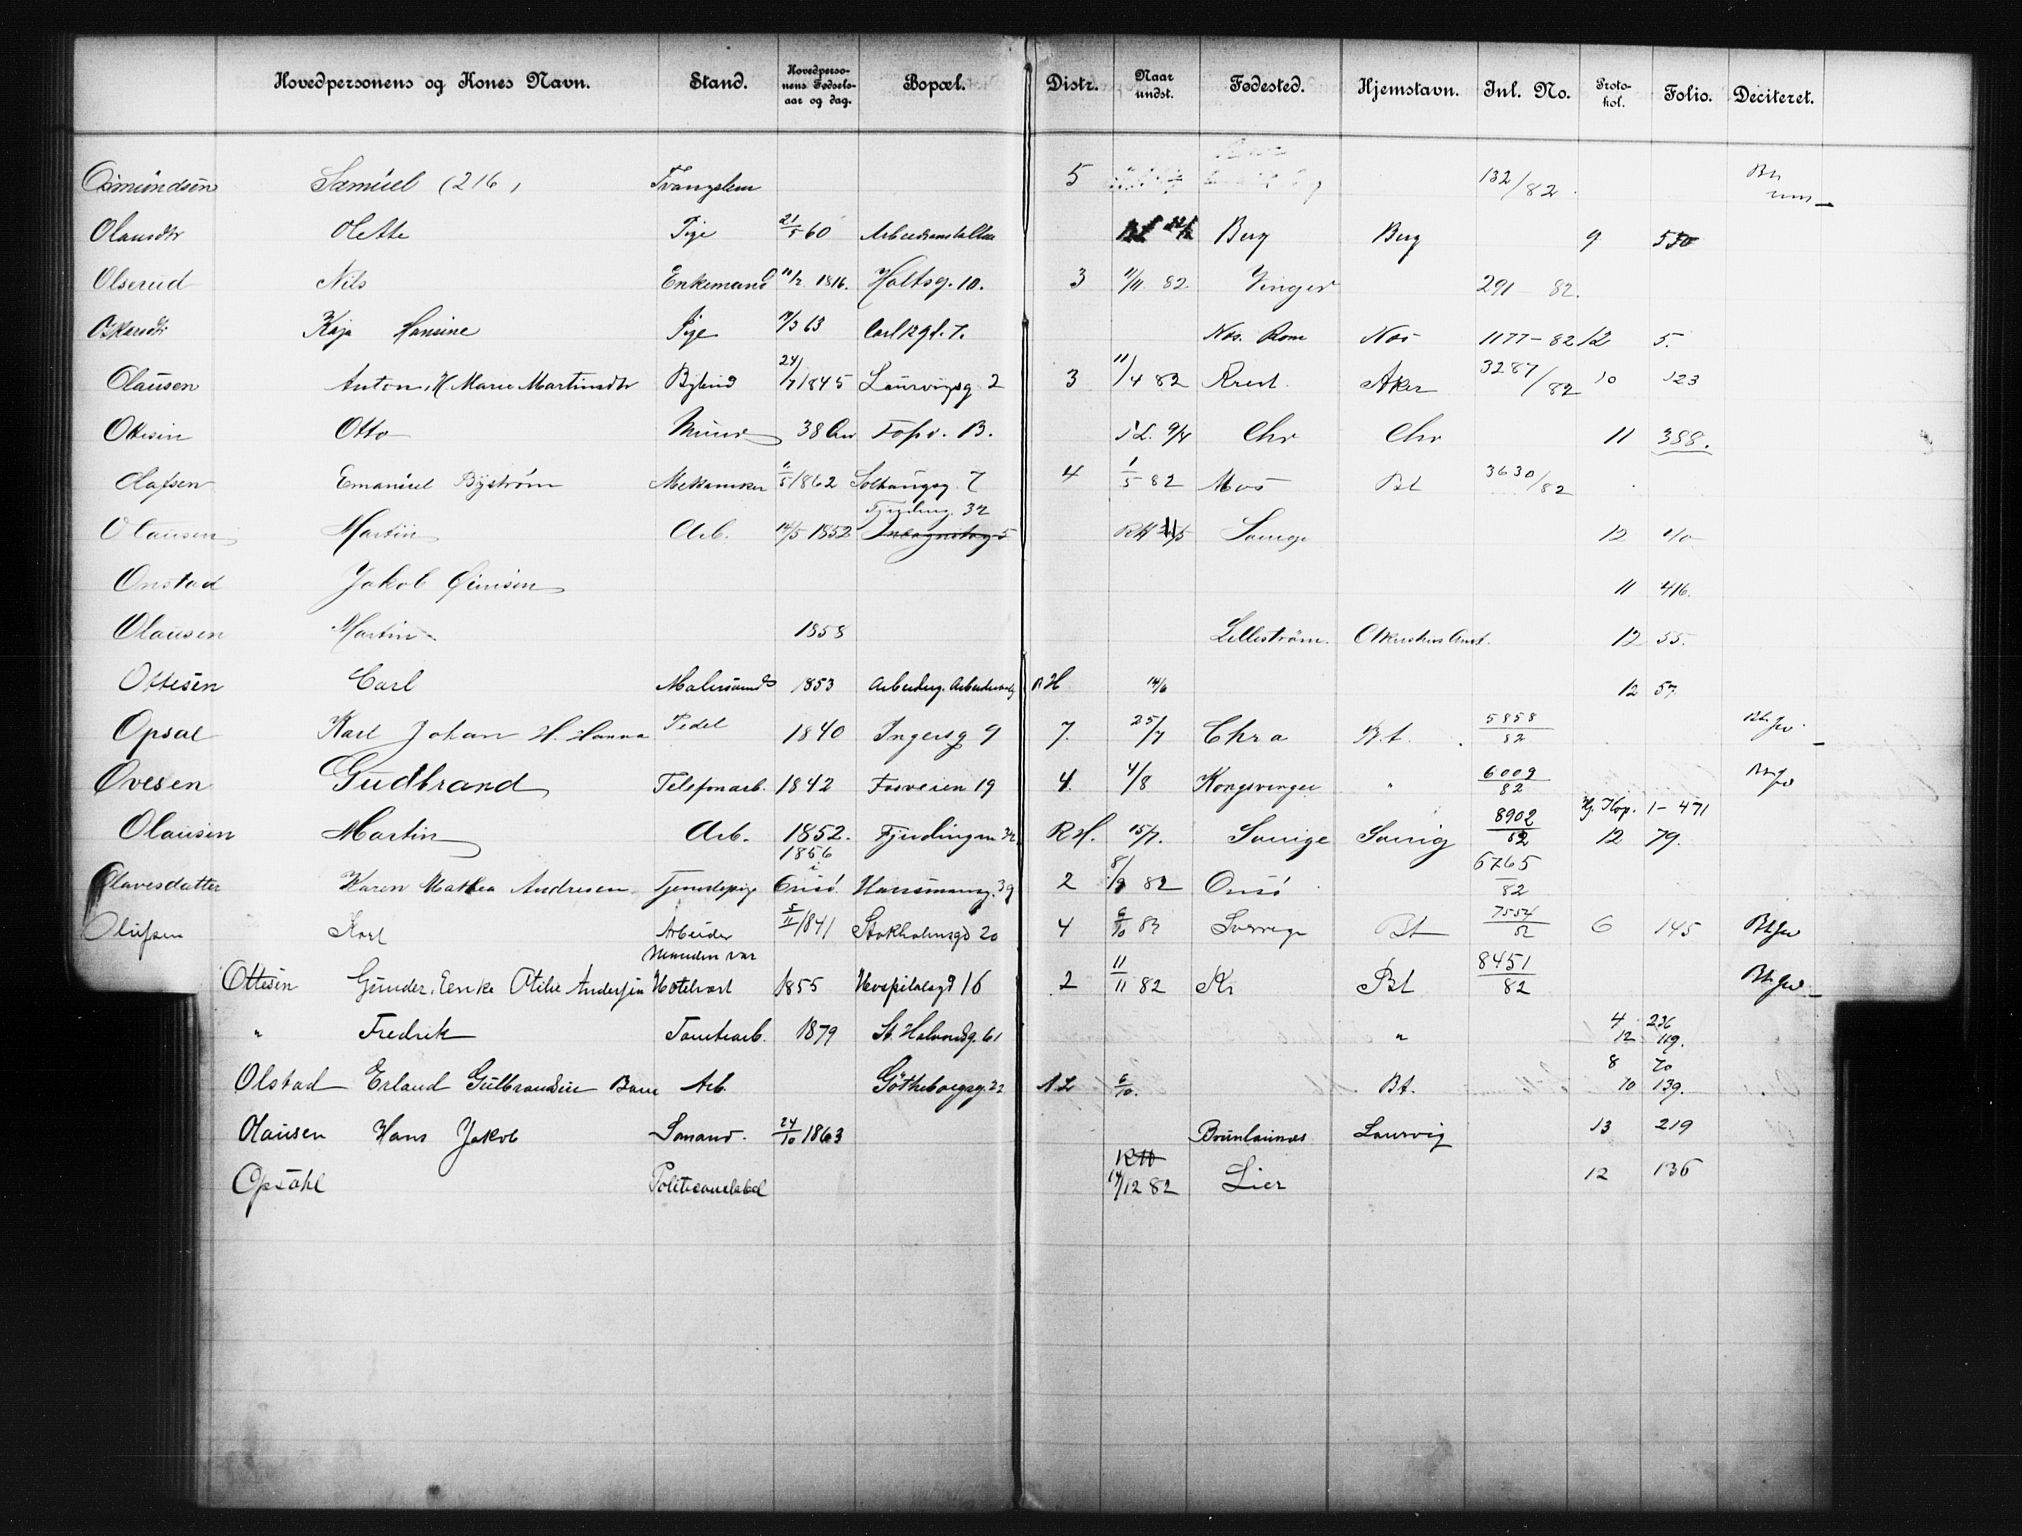 Hovedpersonens og Kones Navn. Stand. Hovedperso-nens Fødsels-aar og dag. Bopæl. Distr. Naar undst. Fødested. Hjemstavn. Inl. No. Proto-kol. Folio. Deciteret.
Osmundsen Samuel (216) 5 132/82
Olausdtr Olette Pige 21/5 60 Arbeidsanstalten Berg Berg 9 550
Olserud Nils Enkemand 11/2 1816. Holtsg. 10. 3 11/11 82. Vinger 291 82.
Kaja Hansine Pige 63 Carl 12 gd. 7. Næs. Rom Næs 1177-82 12 5.
Olausen Anton, H Marie Martinsdtr 24/7 1845 Laurvigsg 2 3 11/4 82 Krist Aker 3287/82 10 123
Ottesen Otto Murer 38 Aar B. 9/4 Chr Chr 11 388.
Olafsen Emanuel Byström Mekaniker 5/1862 7 4 1/5 82 Mos Bt 3630/82
Olausen Martin Arb. 14/5 1852 Fjerding. 32 Incognitog 5 Sverige 12 40
Onstad Jakob 11 416.
Olausen Martin 1858 Lillestrøm. Akershus Amt. 12 55.
Ottesen Carl Malersvend 1853 RH 14/6 12 57
Opsal Karl Johan H. Hanna Pedel 1840 Ingersg 9 7. 25/7 Chra Bt. 5858/82
Ovesen Gudbrand Telefonarb. 1842 Fosveien 19 4. 4/8 Kongsvinger " 6009/82
Hop. 1-471
Olausen Martin Arb. 1852. Fjerdingen 32 RH. 15/7. Sverige Sverig 8902/82 12 79.
Olavesdatter Karen Mathea Andresen Tjenestepige 1856 i Onsø. Hausmansg. 39 2 8/9 82 Onsø 6765/82
Olufsen Karl Arbeider 5/11 1841 Stokholmsgd 20 4 6/10 82 Sverrige Bt 7554/82 6 145
Manden var
Ottesen Gunder, Enke Otilie Andersen Hotelvert 1855 Hospitalsgd 16 2 11/11 82 Kr Bt 8451/82
" Fredrik 1879 St. Halvardsg. 61 " 4 236 12 119.
Olstad Erland Gulbrandsen Arb Götheborgsg. 22 6/10. Bt. 8 70 10 139.
Olausen Hans Jakob Sømand. 24/10 1863 Brunlaunæs Laurvig 13 219
Opsahl Politiconstabel 14/12 82 Lier 12 136